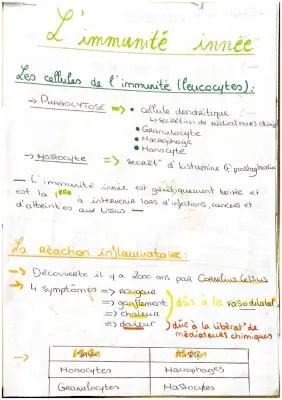 L'immunité innée
Les cellules de l'immunité (leucocytes):
→ PHAGOCYTOSE => • Cellule dendritique
↳ sécrétion de médiateurs chimiq
• Granulocyte
• Macrophage
• Monocyte
→ Mastocyte => Sécrét° d'histamine
— L'immunité innée est génétiquement héritée et
est la 1ère à intervenir lors d'infections, cancers et
d'atteintes aux tissus —
La réaction inflammatoire:
→ Découverte il y a 2000 ans par Cornelius Celsius
→ 4 symptômes => rougeur
=> gonflement dûs à la vasodilatat°
=> chaleur
=> douleur ) dûs à la libérat° de
médiateurs chimiques
→
Monocytes Macrophages
Granulocytes Mastocytes